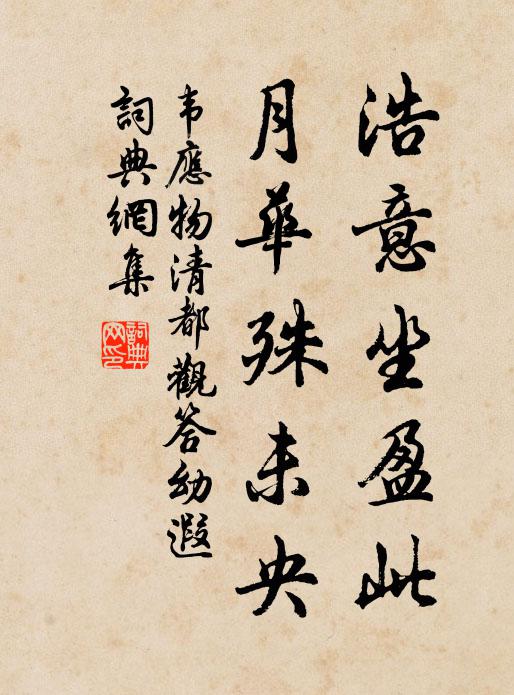 浩意坐盈此
月華殊未央
韦應物清都觀答幼遐
詞典網集
詞典网印